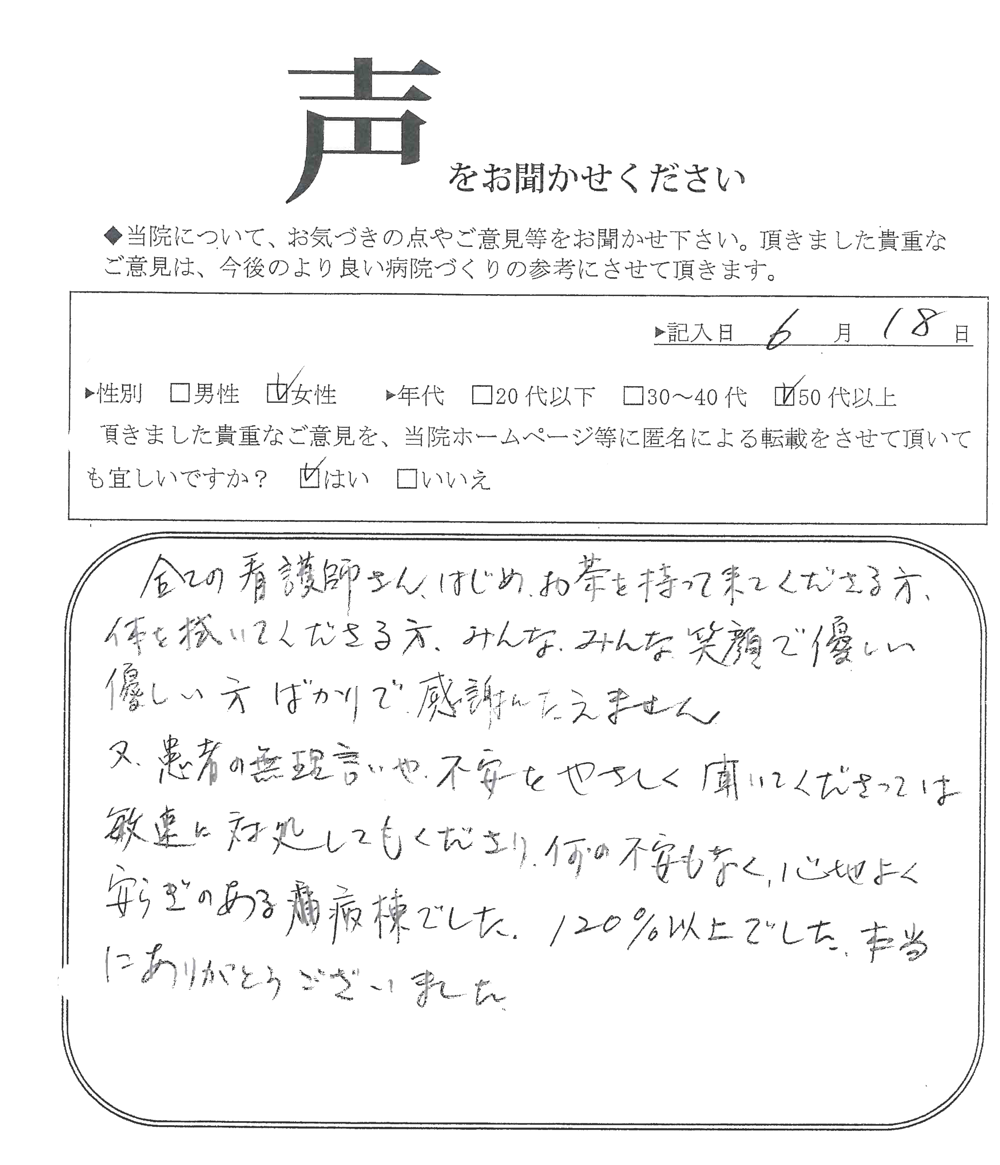 声をお聞かせください
◆当院について、お気づきの点やご意見等をお聞かせ下さい。頂きました貴重な
ご意見は、今後のより良い病院づくりの参考にさせて頂きます。
▶記入日 6 月 18 日
▶性別 □男性 ☑女性 ▶年代 □20代以下 □30～40代 ☑50代以上
頂きました貴重なご意見を、当院ホームページ等に匿名による転載をさせて頂いて
も宜しいですか？ ☑はい □いいえ
全ての看護師さん、はじめ、お茶を持って来てくださる方、
体を拭いてくださる方、みんな、みんな笑顔で優しい
優しい方ばかりで感謝にたえません
又、患者の無理言いや、不安をやさしく聞いてくださっては
敏速に対処してもくださり、何の不安もなく、心地よく
安らぎのある病棟でした。120%以上でした、本当
にありがとうございました。